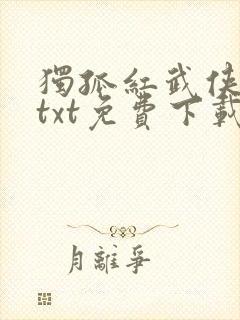 獨孤紅武俠
txt免費下載
月離爭